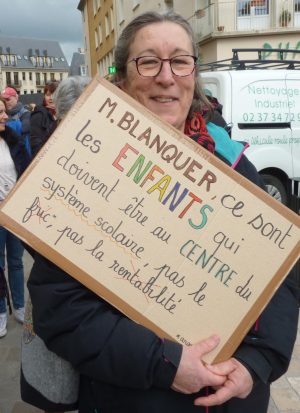 M. BLANQUER, ce sont
les ENFANTS qui
doivent être au CENTRE du
système scolaire, pas le
fric, pas la rentabilité
Nettoyage
Industriel
02 37 42